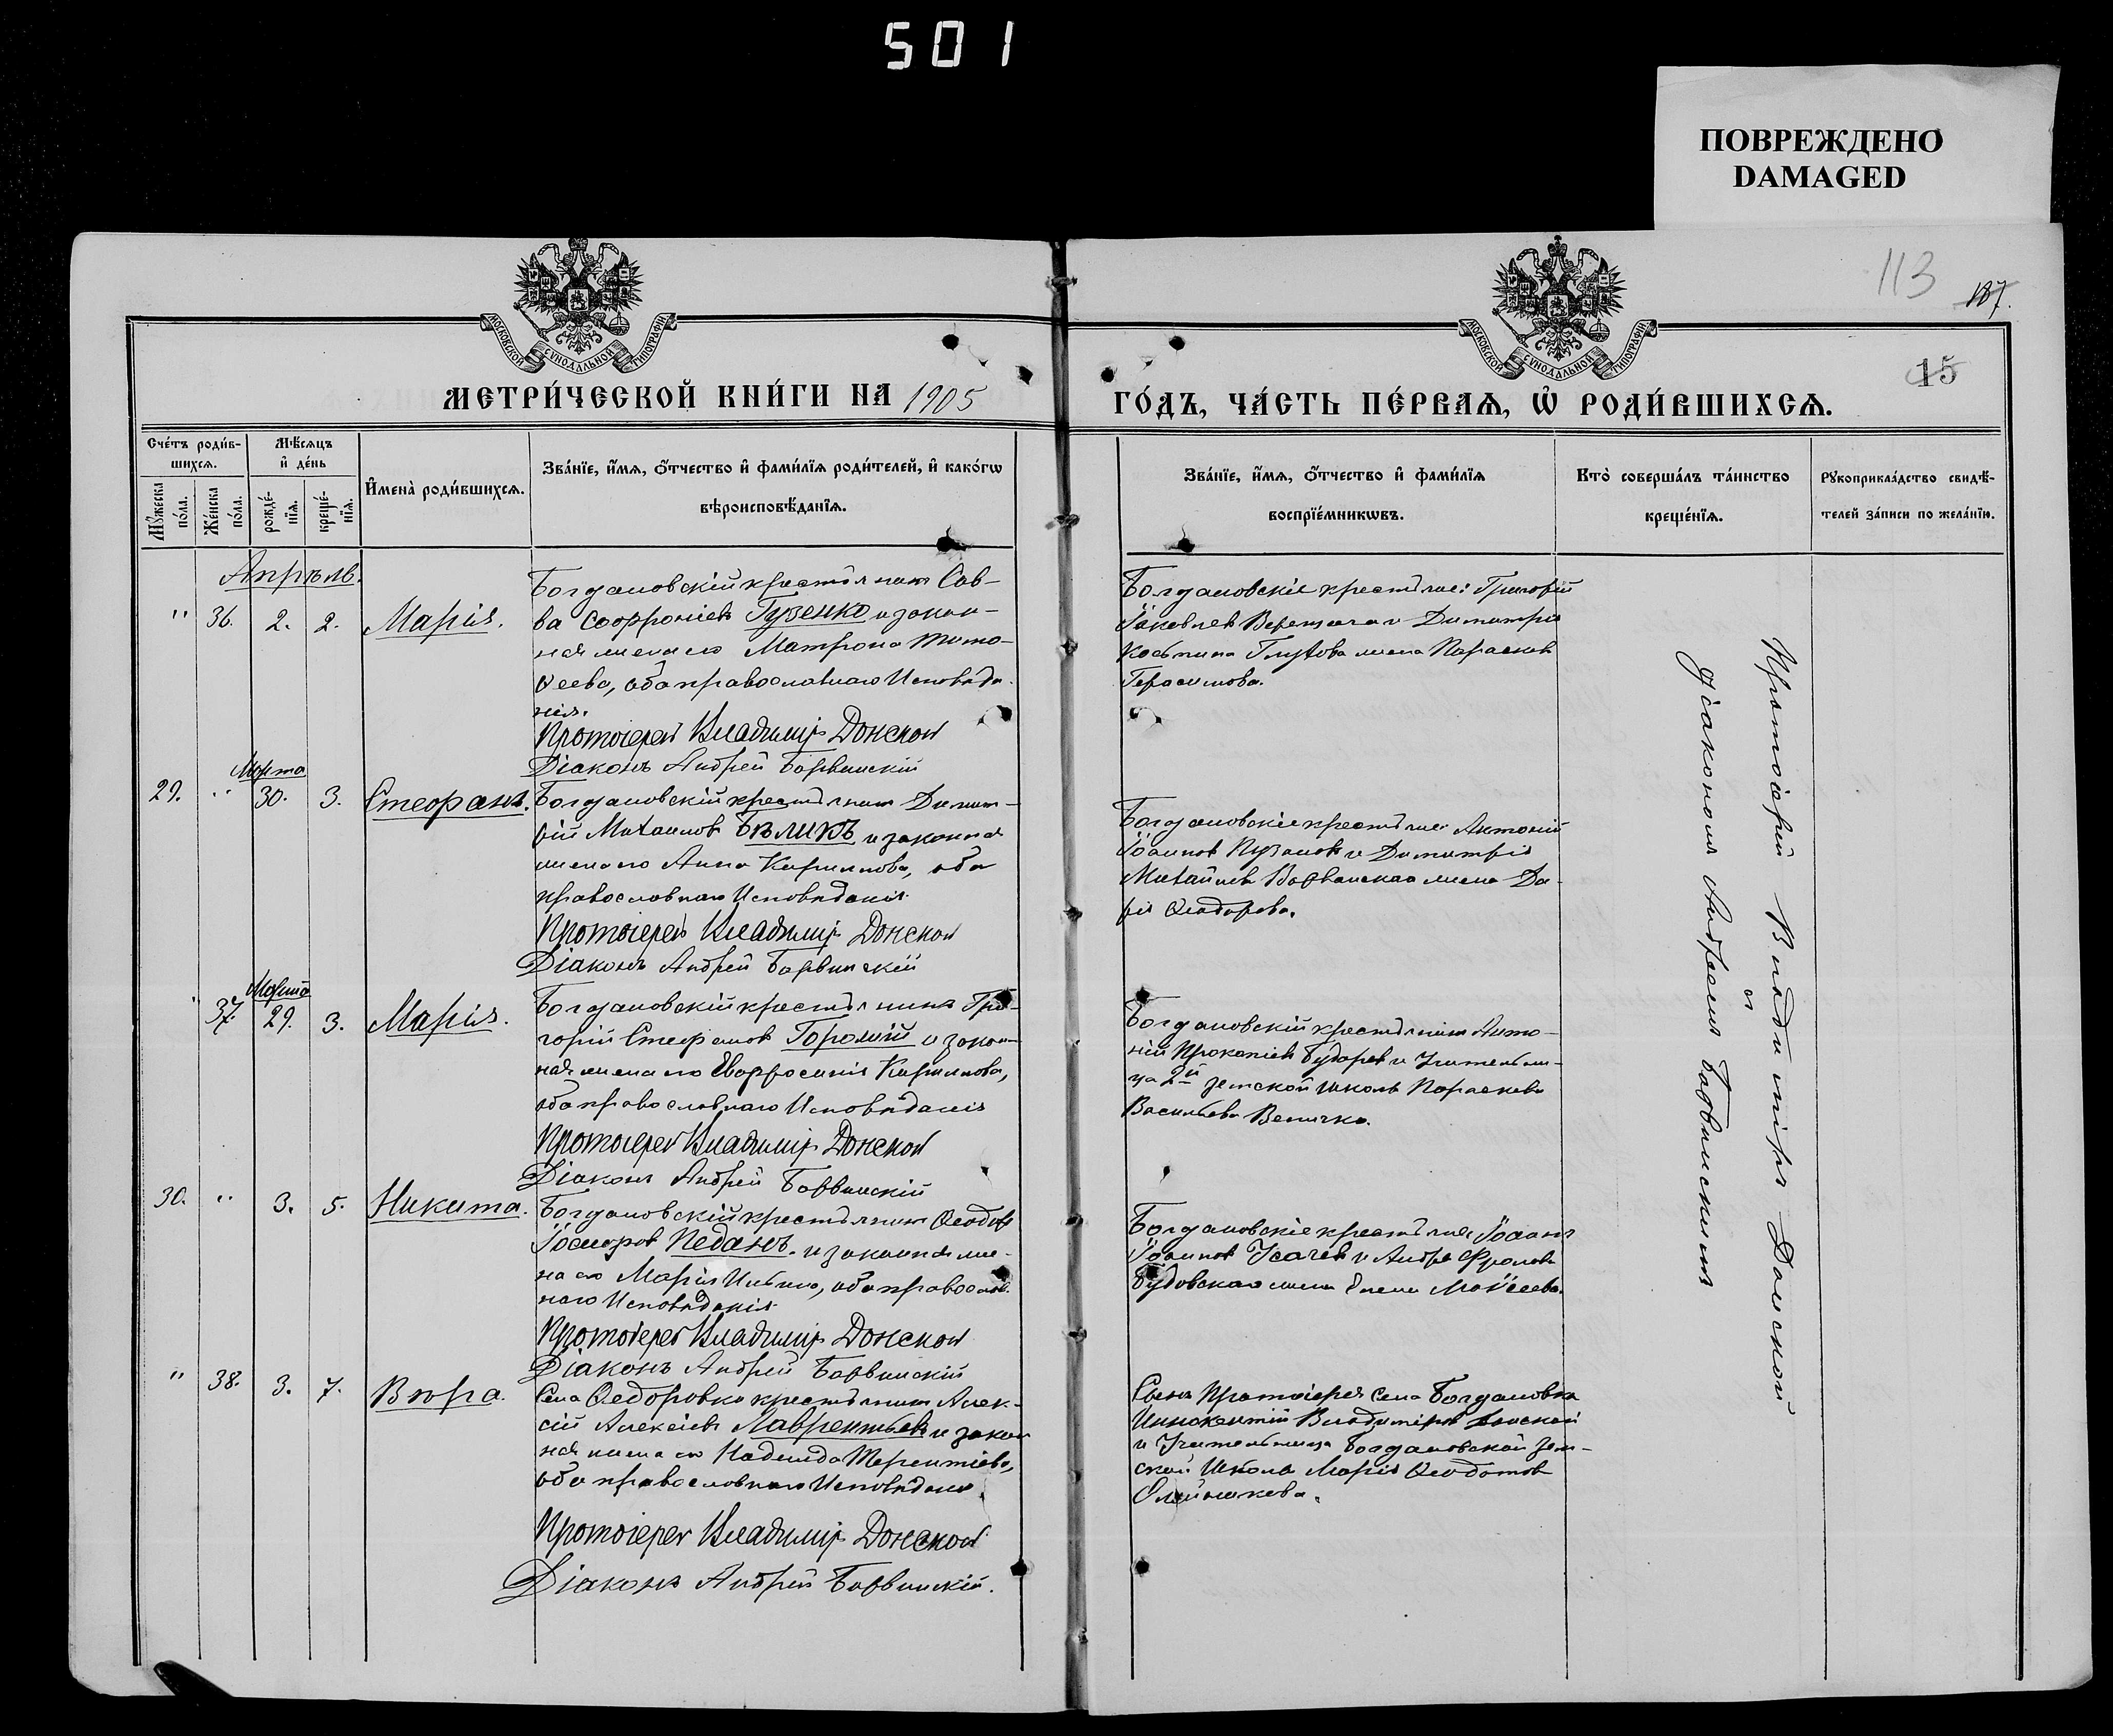 501
ПОВРЕЖДЕНО
DAMAGED
113
187.
15
МОСКОВСКОЙ СѴНОДАЛЬНОЙ ТИПОГРАФІИ
МОСКОВСКОЙ СѴНОДАЛЬНОЙ ТИПОГРАФІИ
МЕТРИ́ЧЕСКОЙ КНИ́ГИ НА 1905
ГО́ДЪ, ЧА́СТЬ ПЕ́РВАѦ, Ѽ РОДИ́ВШИХСѦ.
Сче́тъ роди́в-
шихсѧ.
Мѣ́сѧцъ
и҆ де́нь
Мꙋ́жеска по́ла.
Же́нска по́ла.
рожде́-
нїѧ.
креще́-
нїѧ.
И҆мена̀ роди́вшихсѧ.
Зва́нїе, и҆́мѧ, ѻ҆́тчество и҆ фами́лїѧ роди́телей, и҆ како́гѡ
вѣроисповѣ́данїѧ.
Зва́нїе, и҆́мѧ, ѻ҆́тчество и҆ фами́лїѧ
воспрїе́мникѡвъ.
Кто̀ соверша́лъ та́инство
креще́нїѧ.
Рꙋкоприкла́дство свидѣ́-
телей за́писи по жела́нїю.
Апрѣль.
" 36. 2. 2. Марія.
Богдановскій крестьянинъ Сав-
ва Софроніевъ Гузенко и закон-
ная жена его Матрона Тимо-
ѳеева, оба православнаго Исповѣда-
нія.
Протоіерей Владиміръ Донской
Діаконъ Андрей Барвинскій
Богдановскіе крестьяне: Григорій
Іаковлевъ Верещага и Димитрія
Косьмина Глухова жена Параскева
Герасимова.
Марта
29. " 30. 3. Стефанъ.
Богдановскій крестьянинъ Димит-
рій Михаиловъ Бѣликъ и законная
жена его Анна Кириллова, оба
православнаго Исповѣданія.
Протоіерей Владиміръ Донской
Діаконъ Андрей Барвинскій
Богдановскіе крестьяне Антоній
Іоанновъ Пузановъ и Димитрія
Михайлова жена Да-
рія Ѳеодорова.
Марта
" 37. 29. 3. Марія.
Богдановскій крестьянинъ Гри-
горій Стефановъ и закон-
ная жена его Евфросинія Кириллова,
оба православнаго Исповѣданія
Протоіерей Владиміръ Донской
Діаконъ Андрей Барвинскій
Богдановскій крестьянинъ Анто-
ній Прокопіевъ и Учительни-
ца 2й земской школы Параскева
Васильева Величко.
30. " 3. 5. Никита.
Богдановскій крестьянинъ Ѳеодоръ
Іосифовъ Педанъ и законная же-
на его Марія Ильина, оба православ-
наго Исповѣданія
Протоіерей Владиміръ Донской
Діаконъ Андрей Барвинскій
Богдановскіе крестьяне Іоаннъ
Іоанновъ Усачевъ и Андрея Фролова
жена Елена Моѵсеева.
" 38. 3. 7. Вѣра.
Села Ѳедоровки крестьянинъ Алек-
сій Алексіевъ Лаврентьевъ и закон
ная жена его Надежда Терентіева,
оба православнаго Исповѣданія
Протоіерей Владиміръ Донской
Діаконъ Андрей Барвинскій.
Сынъ Протоіерея Села Богдановки
Иннокентій Владиміровъ Донской
и Учительница Богдановской Зем-
ской Школы Марія Ѳеодотова
Олейникова.
Протоіерей Владиміръ Донской
и
діакономъ Андреемъ Барвинскимъ